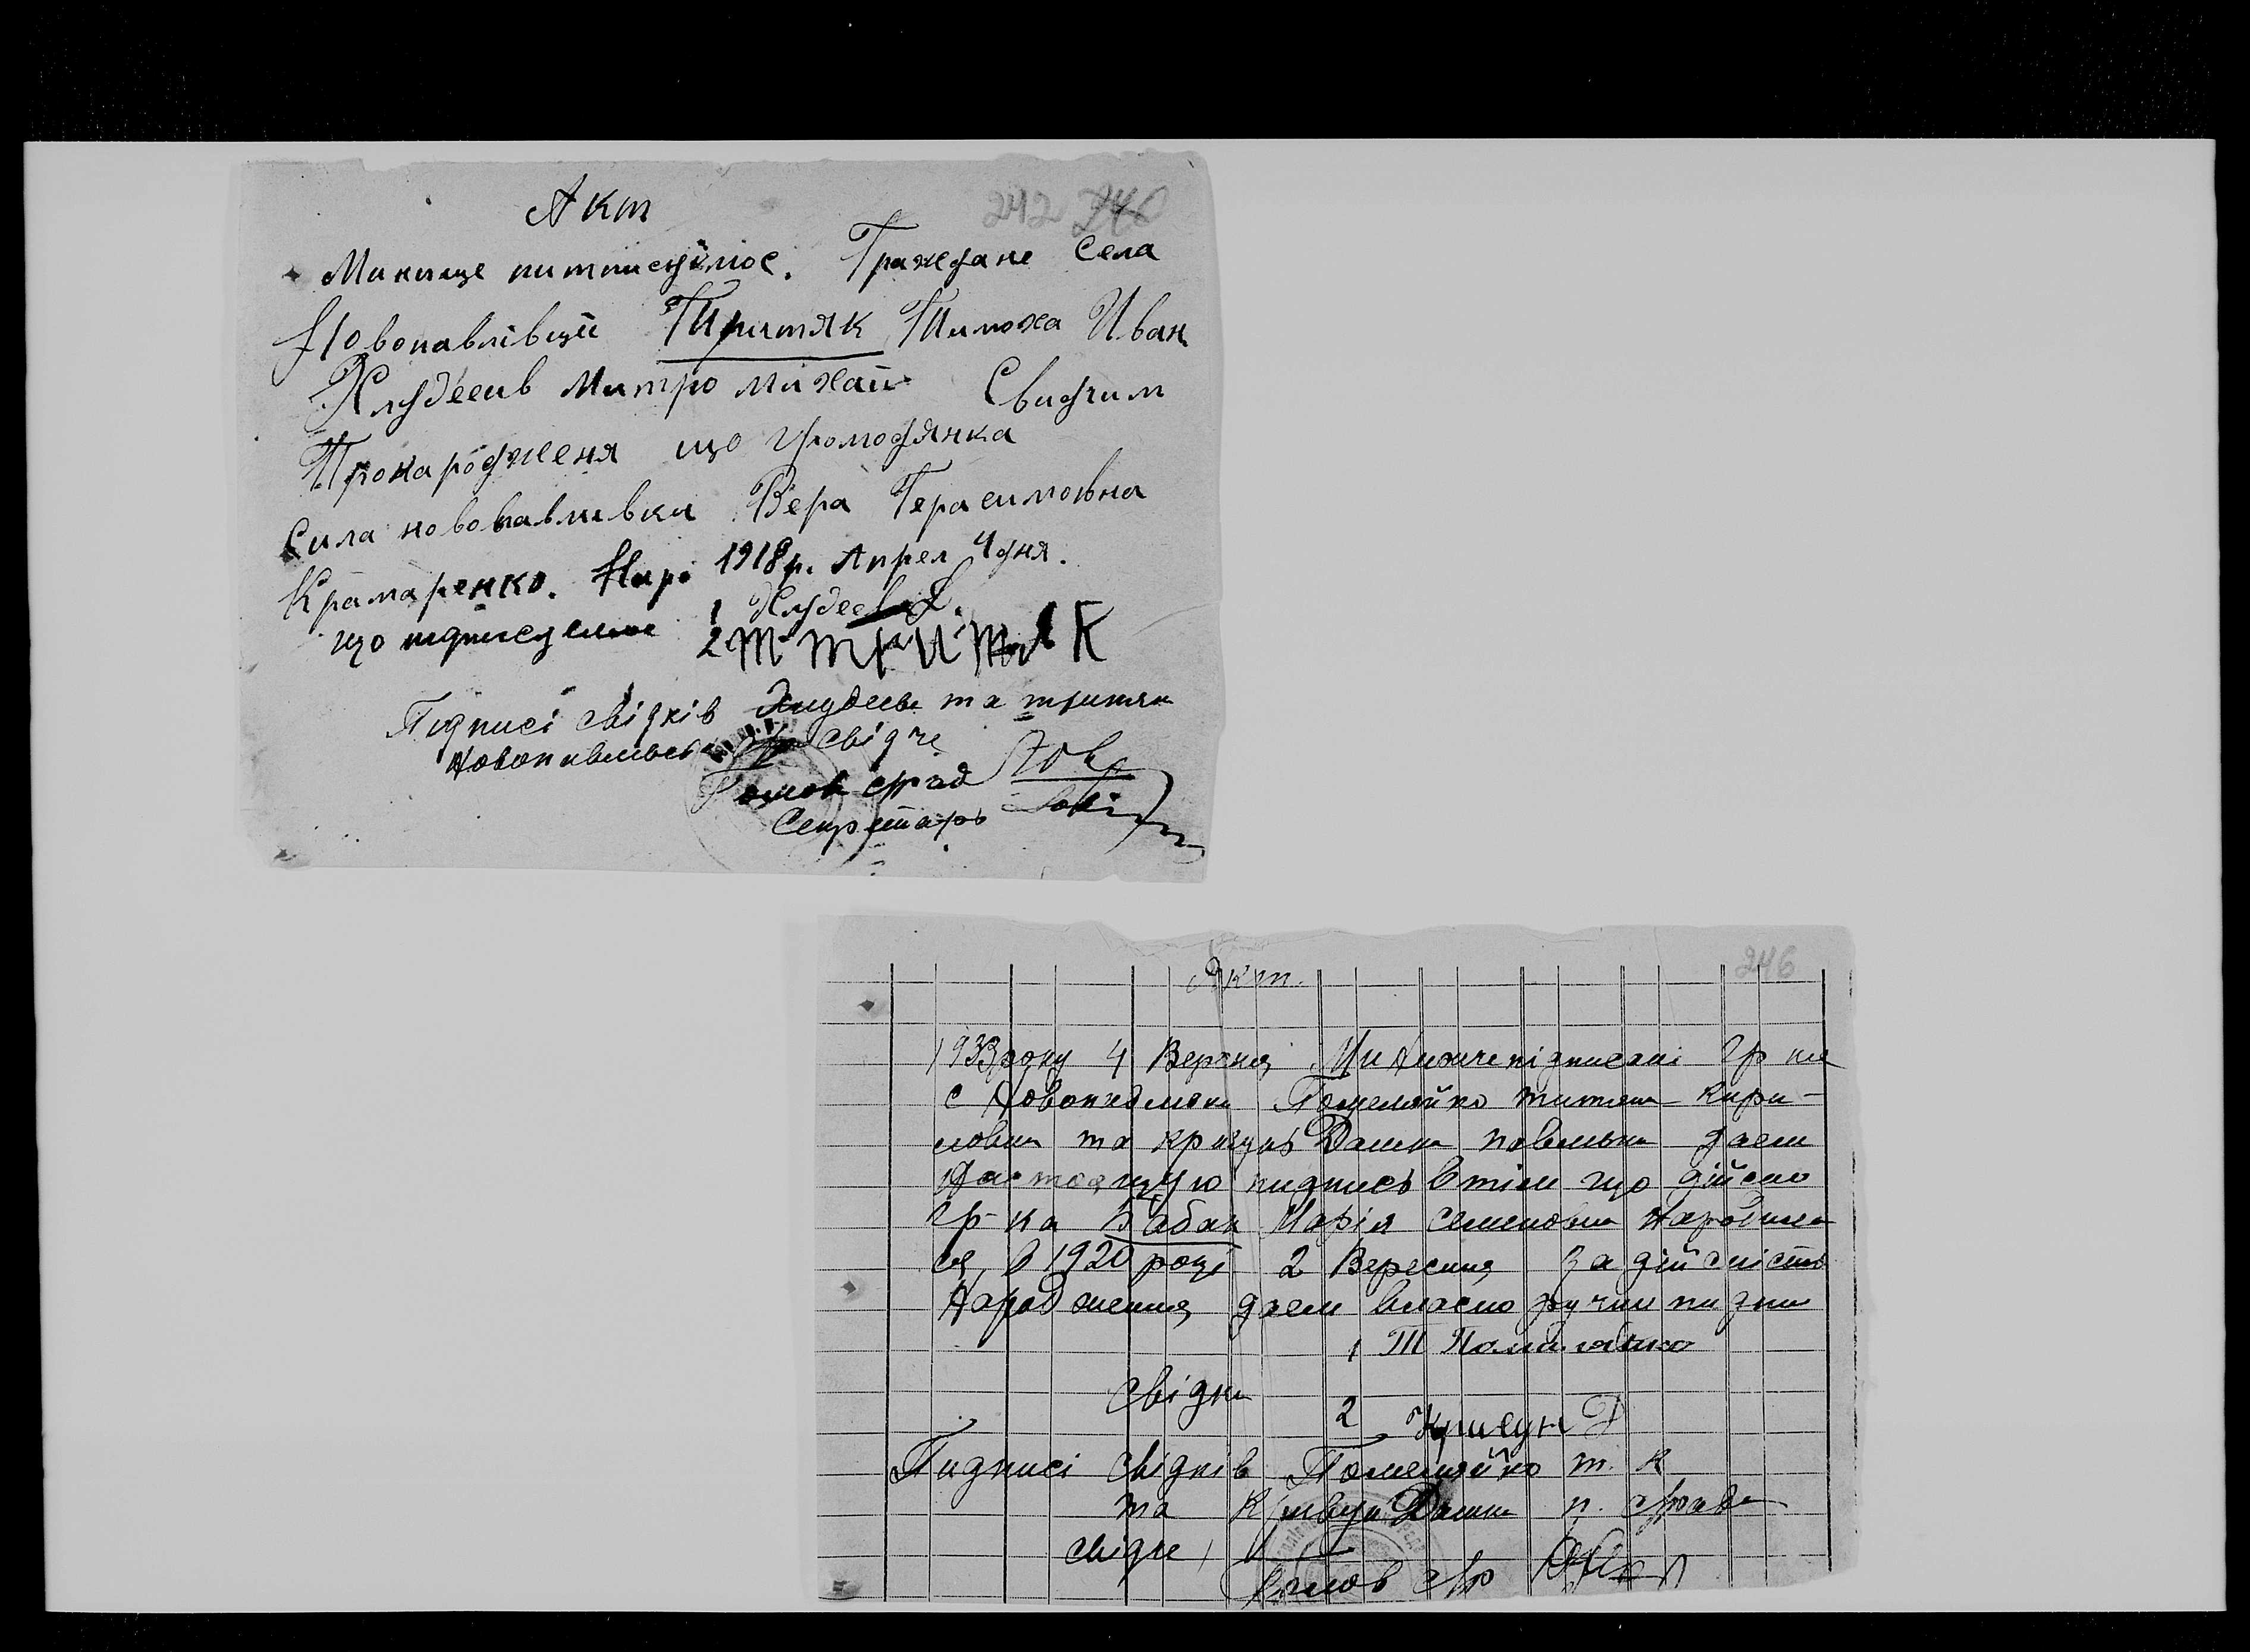 Акт
242 246
Миныще питписуїмос. Граждане Села
Новопавлівци Тритяк Тимоха Иван
Хлудеев Митро Михай Свидчим
Пронародженя що громодянка
Сила новопавливки Вера Герасимовна
Крамаренко. Наро 1918р. Апрел 4 дня.
що
1 Хлудеев
2 Т Тритяк
Пидписі свідків Хлудеев та тритяк
свідче
Голов с/рад
Секретарь
246
Акт.
1933 року 4 Версня Ми нижчепідписані гр не
с Новопавловки Помеляйко Титяна Кири-
ловна та кригун Дашка павловна даем
Настоящую пидпись втім що дійсно
гр-ка Бабак Марія Семеновна Народила
ся в 1920 році 2 Вересння За дійсність
Народження даем власно ручни пидпи
1 Т Помиляйко
Свідки
2 Кривун Д
Пидписі свідків Помеляйко т. К
та Кривун Дашки п. с/рада
свідче
Голов с/р